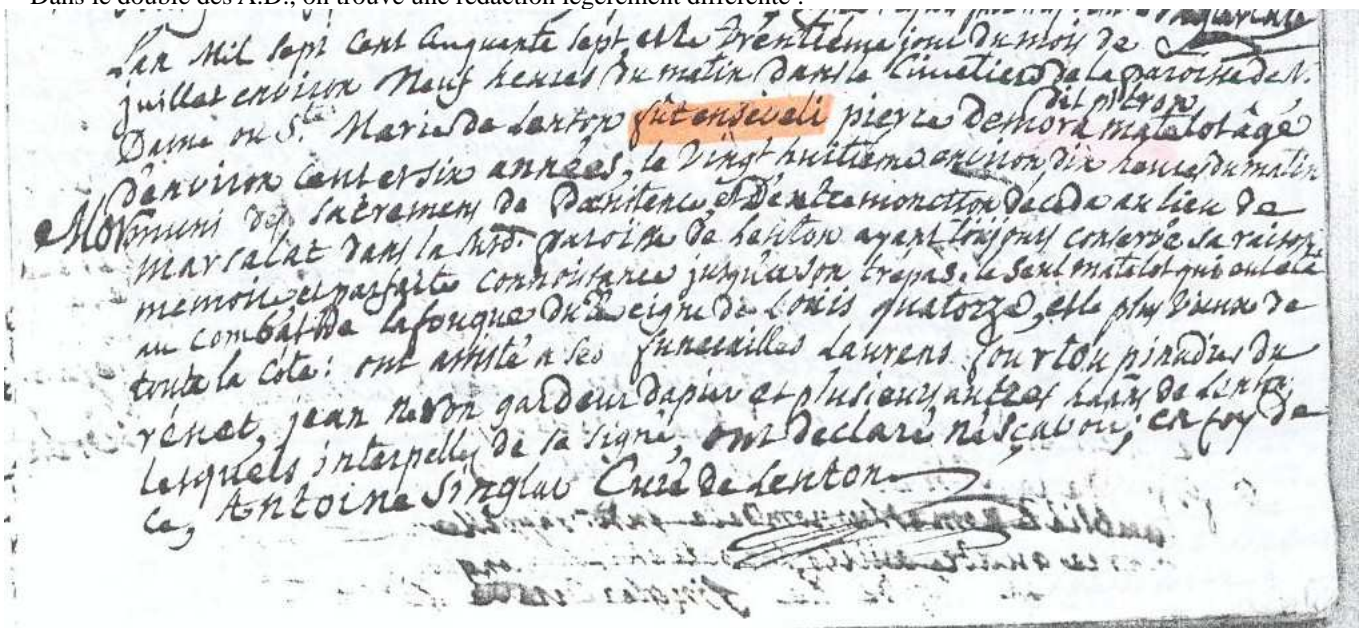 Dans le double des A.D., on trouve une rédaction légèrement différente :
L'an Mil Sept Cent Cinquante Sept, et le Trentieme jour du mois de
juillet environ Neuf heures du matin dans le Cimetiere de la paroisse de N.
Dame ou Ste Marie de Lenton fût enseveli pierre Demora dit pitron matelot âgé
d'environ Cent et six années, le Vingt huitieme environ dix heures du matin
muni des sacremens de Penitence, et D'extremonction deceda au lieu de
marsalat dans la susd. paroisse de Lenton ayant toujours conservé sa raison
memoire et parfaite connoissance jusqu'a son trepas. le seul matelot qui eut eté
au combat de lafougue du Reigne de Louis quatorze, et le plus vieux de
toute la Cote: ont assisté a ses funerailles Laurens Fourtou
renet, jean gardeur dapier et plusieurs autres de Lenton
lesquels interpellés de se signer, ont declaré ne sçavoir; en foy de
ce, Antoine Singlau Curé de Lenton